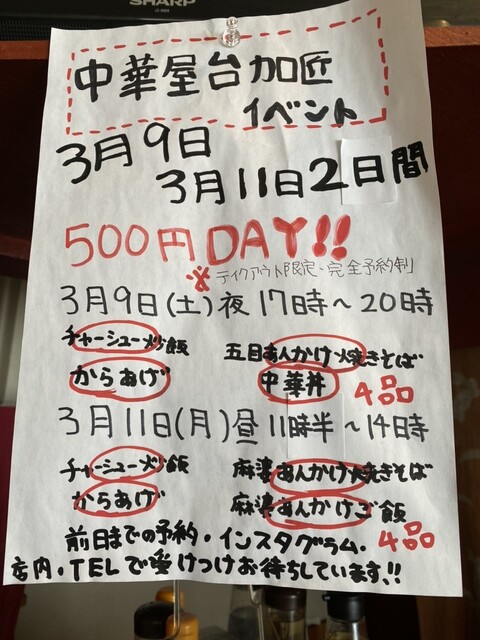 SHARP
中華屋台加匠
イベント
3月9日
3月11日2日間
500円DAY!!
※テイクアウト限定・完全予約制
3月9日(土)夜17時～20時
チャーシュー炒飯 五目あんかけ焼きそば
からあげ 中華丼 4品
3月11日(月)昼11時半～14時
チャーシュー炒飯 麻婆あんかけ焼きそば
からあげ 麻婆あんかけご飯
前日までの予約・インスタグラム・ 4品
店内・TELで受けつけお待ちしています!!